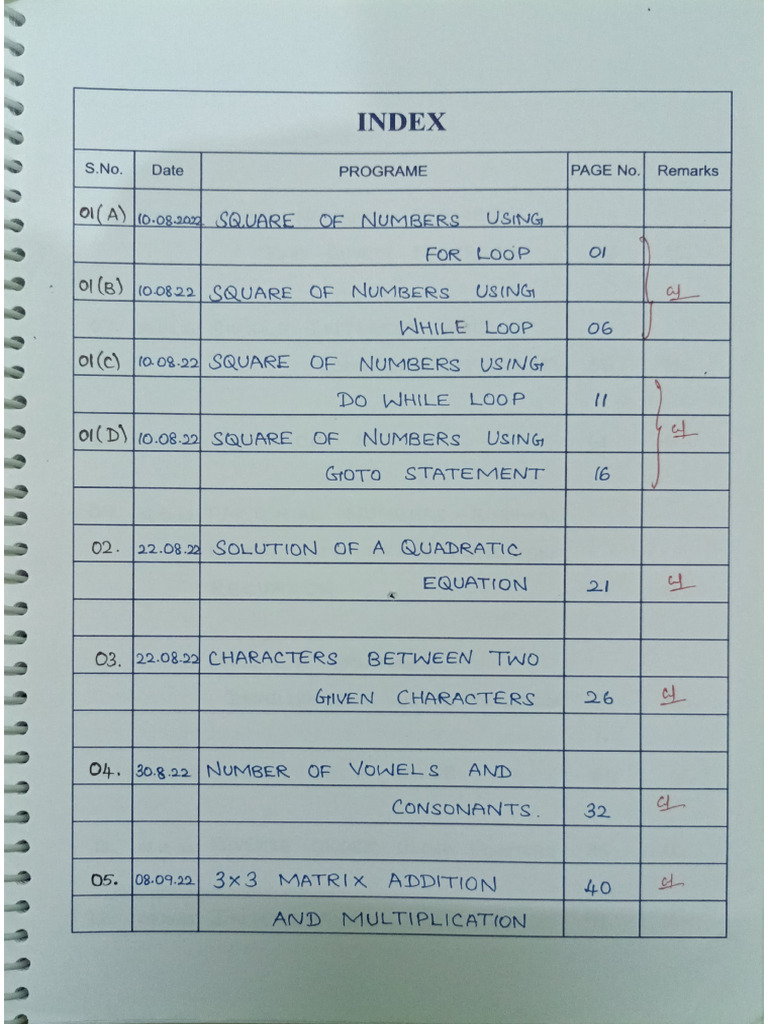 INDEX
S.No. Date PROGRAME PAGE No. Remarks
01(A) 10.08.2022 SQUARE OF NUMBERS USING
FOR LOOP 01
01(B) 10.08.22 SQUARE OF NUMBERS USING
WHILE LOOP 06
01(C) 10.08.22 SQUARE OF NUMBERS USING
DO WHILE LOOP 11
01(D) 10.08.22 SQUARE OF NUMBERS USING
GOTO STATEMENT 16
02. 22.08.22 SOLUTION OF A QUADRATIC
EQUATION 21
03. 22.08.22 CHARACTERS BETWEEN TWO
GIVEN CHARACTERS 26
04. 30.8.22 NUMBER OF VOWELS AND
CONSONANTS. 32
05. 08.09.22 3×3 MATRIX ADDITION 40
AND MULTIPLICATION